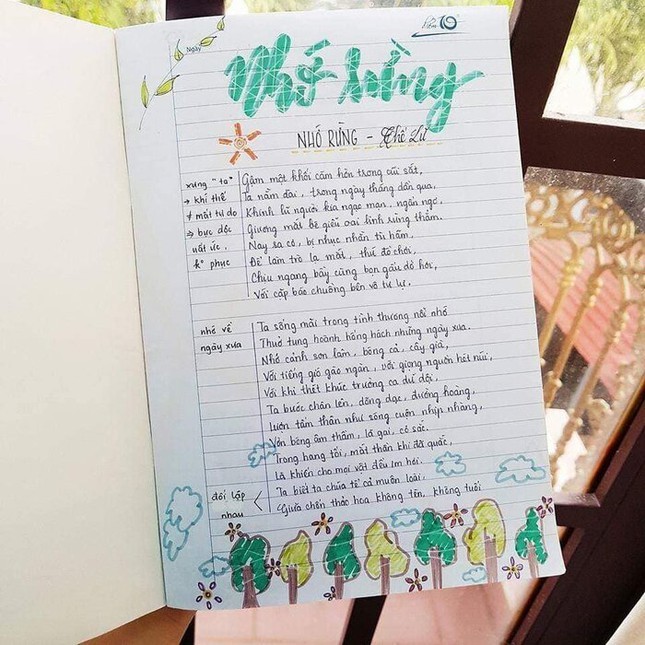 Ngày
Nhớ rừng
NHỚ RỪNG - Thế Lữ
xưng "ta"
→ khí thế
≠ mất tự do
⇒ bực dọc
uất ức,
ko phục
Gậm một khối căm hờn trong cũi sắt,
Ta nằm dài, trong ngày tháng dần qua,
Khinh lũ người kia ngạo mạn, ngẩn ngơ,
Giương mắt bé giễu oai linh rừng thẳm.
Nay sa cơ, bị nhục nhằn tù hãm,
Để làm trò lạ mắt, thứ đồ chơi,
Chịu ngang bầy cùng bọn gấu dở hơi,
Với cặp báo chuồng bên vô tư lự,
nhớ về
ngày xưa
Ta sống mãi trong tình thương nỗi nhớ
Thuở tung hoành hống hách những ngày xưa.
Nhớ cảnh sơn lâm, bóng cả, cây già,
Với tiếng gió gào ngàn, với giọng nguồn hét núi,
Với khi thét khúc trường ca dữ dội,
Ta bước chân lên, dõng dạc, đường hoàng,
Lượn tấm thân như sóng cuộn nhịp nhàng,
Vờn bóng âm thầm, lá gai, cỏ sắc.
Trong hang tối, mắt thần khi đã quắc,
Là khiến cho mọi vật đều im hơi.
đối lập
nhau
Ta biết ta chúa tể cả muôn loài,
Giữa chốn thảo hoa không tên, không tuổi